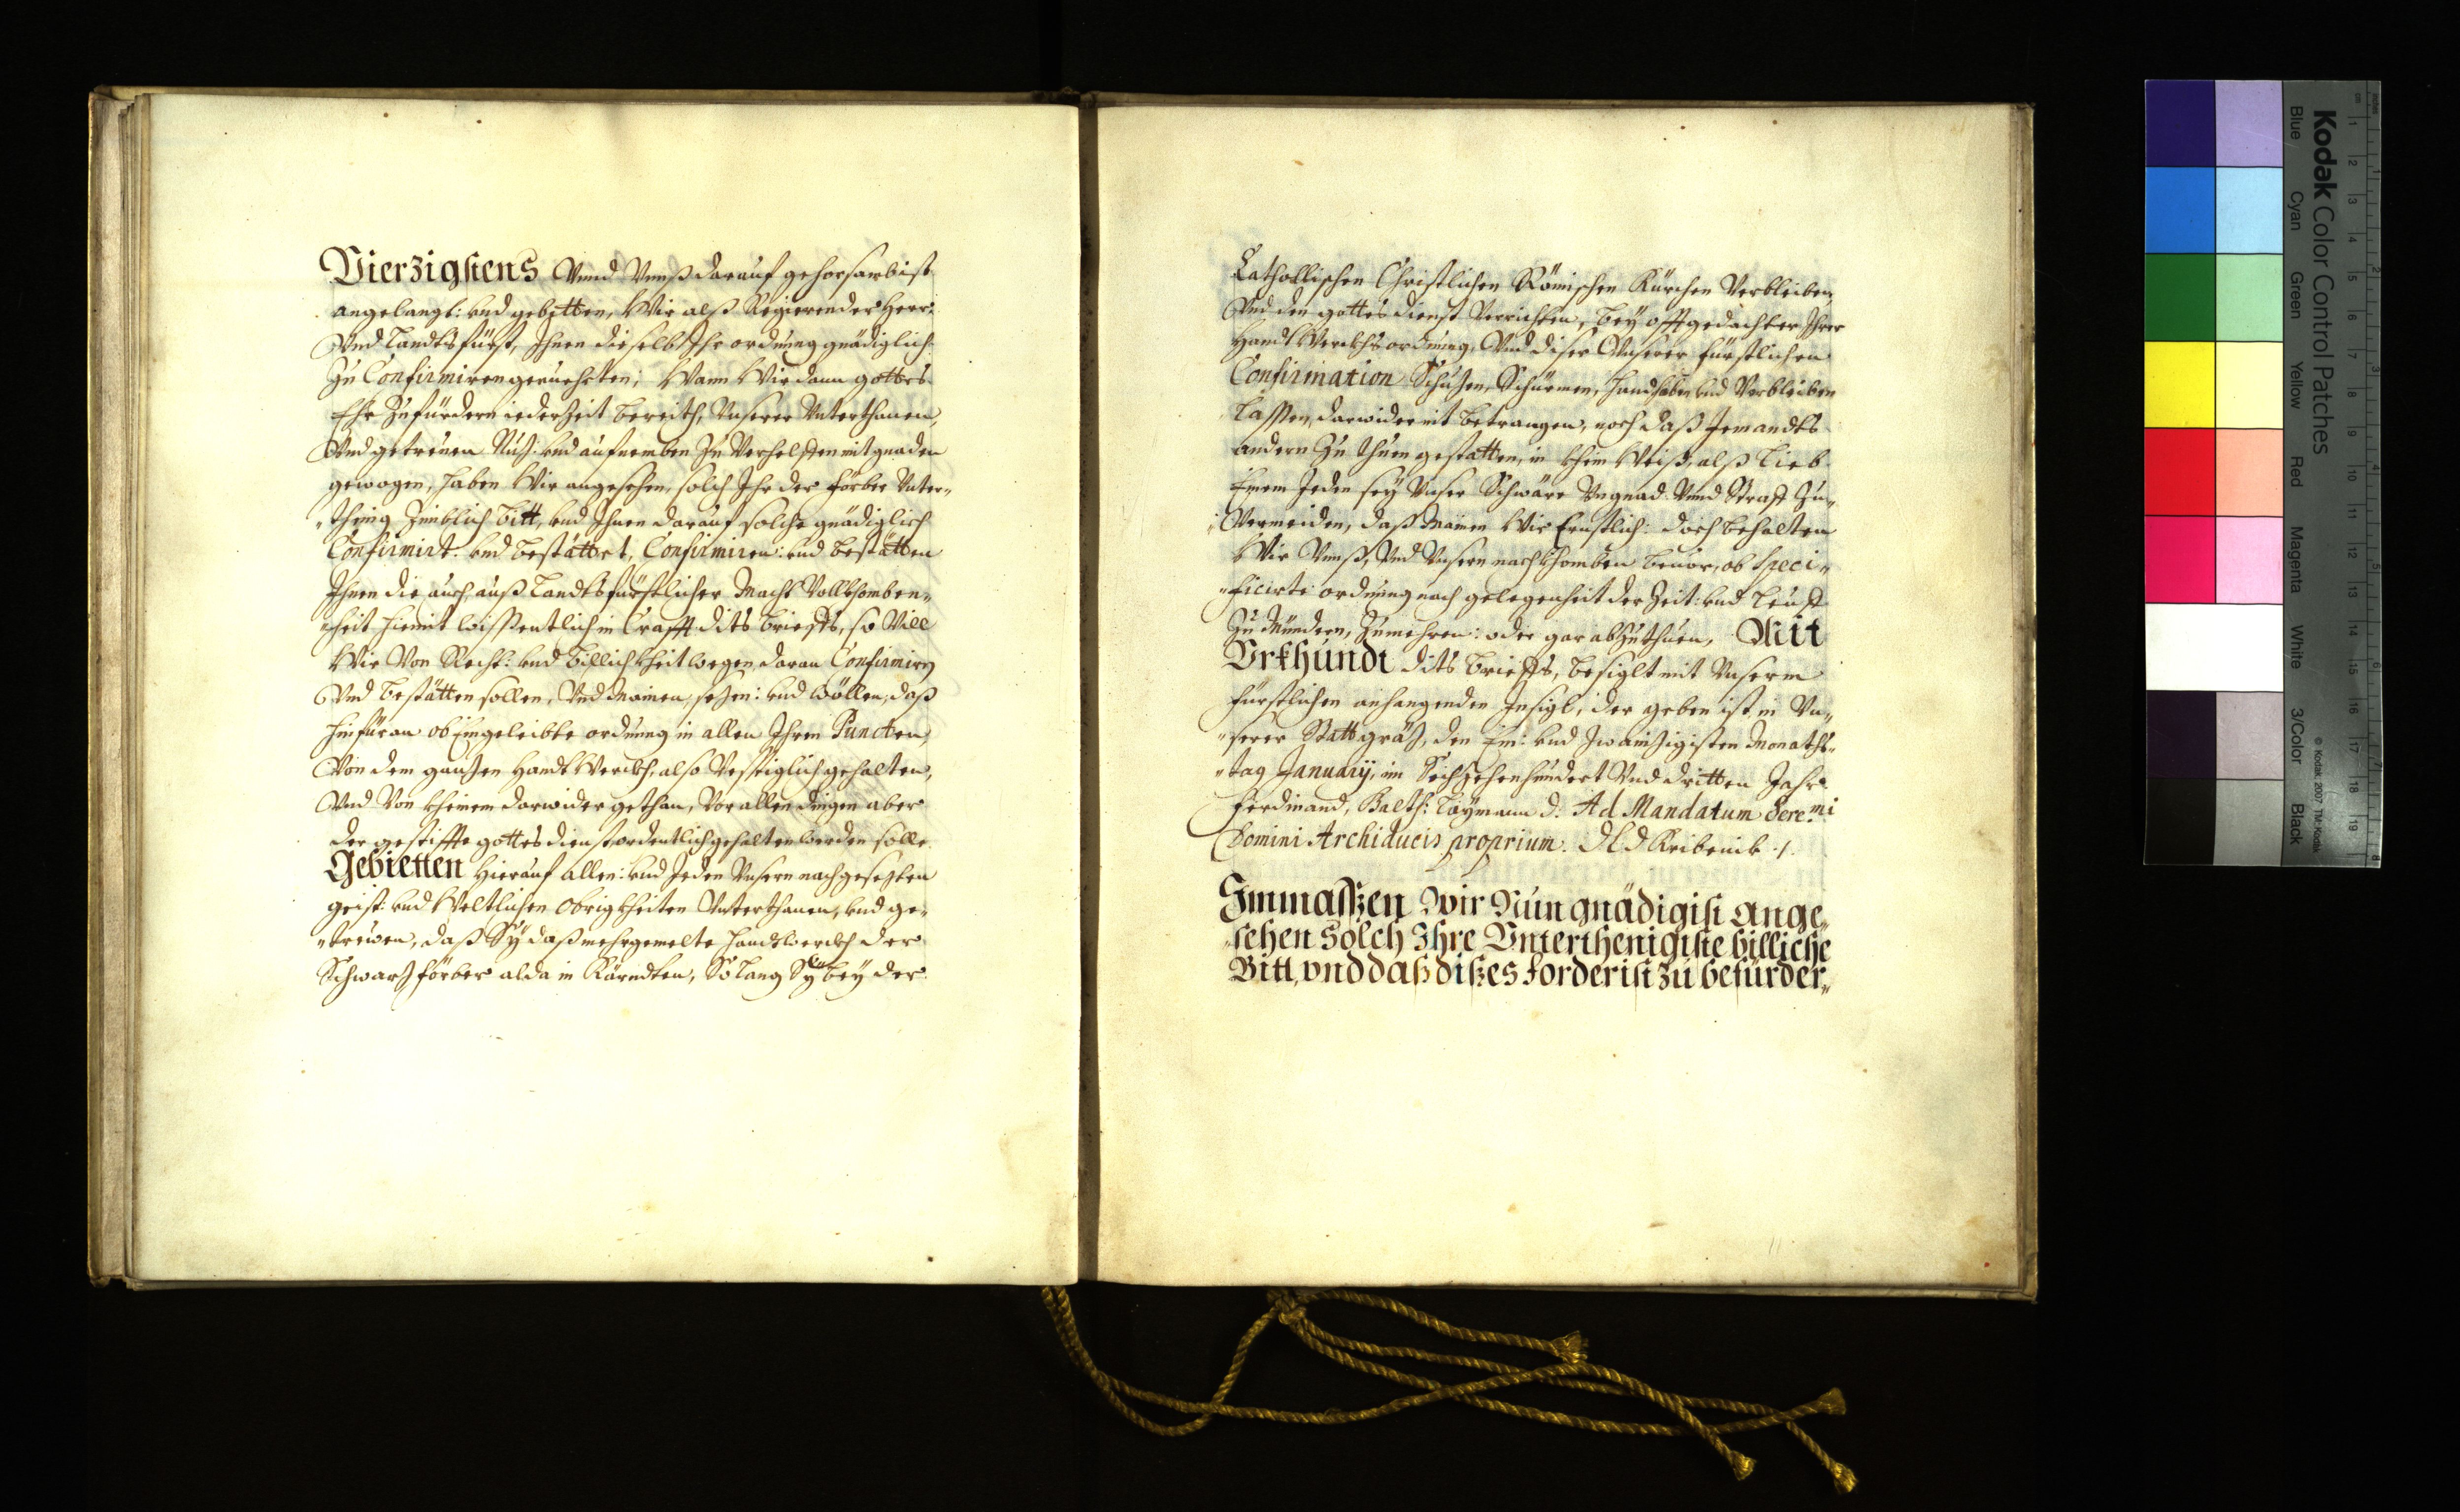 Vierzigstens Vnnd Vnnß darauf gehorsambist
angelangt: vnd gebetten, Wir alß Regierender Herr:
Vnd Landtsfürst, Ihnen dieselb Ihr ordnung gnädiglich
Zu Confirmiren geruehеten; Wann Wir dann gottes
Ehr Zufürdern iederzeit bereith, Vnserer Vnterthanen,
Vnd getreuen Nuz: vnd aufnemben Zu Verhelffen mit gnaden
gewogen, haben Wir angesehen, solch Ihr der förber Vnter„
„thenig Zimblich bitt, vnd Ihnen darauf solche gnädiglich
Confirmirt: vnd bestättet, Confirmiren: vnd bestätten
Ihnen die auch auß Landtsfürstlicher Macht Vollkhomben„
„heit hiemit wissentlich in Crafft dits brieffs, so Vill
Wir Von Recht: vnd billichkheit wegen daran Confirmirn
Vnd bestätten sollen, Vnd Mainen, sezen: vnd wöllen, daß
hinfüran ob Eingeleibte ordnung in allen Ihren Puncten,
Von dem ganzen Handt Werckh, also Vestiglich gehalten,
Vnd Von kheinem darwider gethan, Vor allen dingen aber
der gestiffte gottesdienst ordentlich gehalten werden solle.
Gebietten Hierauf allen: vnd Jeden Vnsern nachgesezten
geist: vnd Weltlichen Obrigkheiten Vnterthanen, vnd ge„
„treuen, daß Sÿ daß mehrgemelte handtwerckh der
Schwarzförber alda in Kärndten, So lang Sÿ bey der
Catholischen Christlichen Römischen Kürchen Verbleiben,
Vnd den gottesdienst Verrichten, beÿ offtgedachter Ihrer
Handt Werckhs ordnung, Vnd diser Vnserer fürstlichen
Confirmation Schuzen, Schürmen, handhaben vnd Verbleiben
lassen, darwider nit betrangen, noch daß Jemandts
andern Zu thuen gestatten, in khein Weiß, alß lieb
Einem Jeden seÿ Vnser Schwäre Vngnad: Vnnd Straff Zu„
„Vermeiden, daß Mainen Wir Ernstlich: doch behalten
Wir Vnnß, Vnd Vnsern nachkhomben beuor, ob speci„
„ficirte ordnung nach gelegenheit der Zeit: vnd leuff
Zu Mündern, Zumehren: oder gar abzuthuen, Mit
Vrkhundt dits brieffs, besiglt mit Vnserm
fürstlichen anhangenden Insigl, der geben ist in Vn„
„serer Statt gräz, den Ein: vnd Zwainzigisten Monaths„
„tag Januarÿ, im Sechzehenhundert Vnd dritten Jahr
Ferdinand, Balth: Laÿmann D: Ad Mandatum Sere.mi
Domini Archiducis proprium.
Immassen Wir Nun gnädigist ange„
„sehen Solch Ihre Vnterthenigiste billiche
Bitt, vnd daß dises forderist zu befürder„